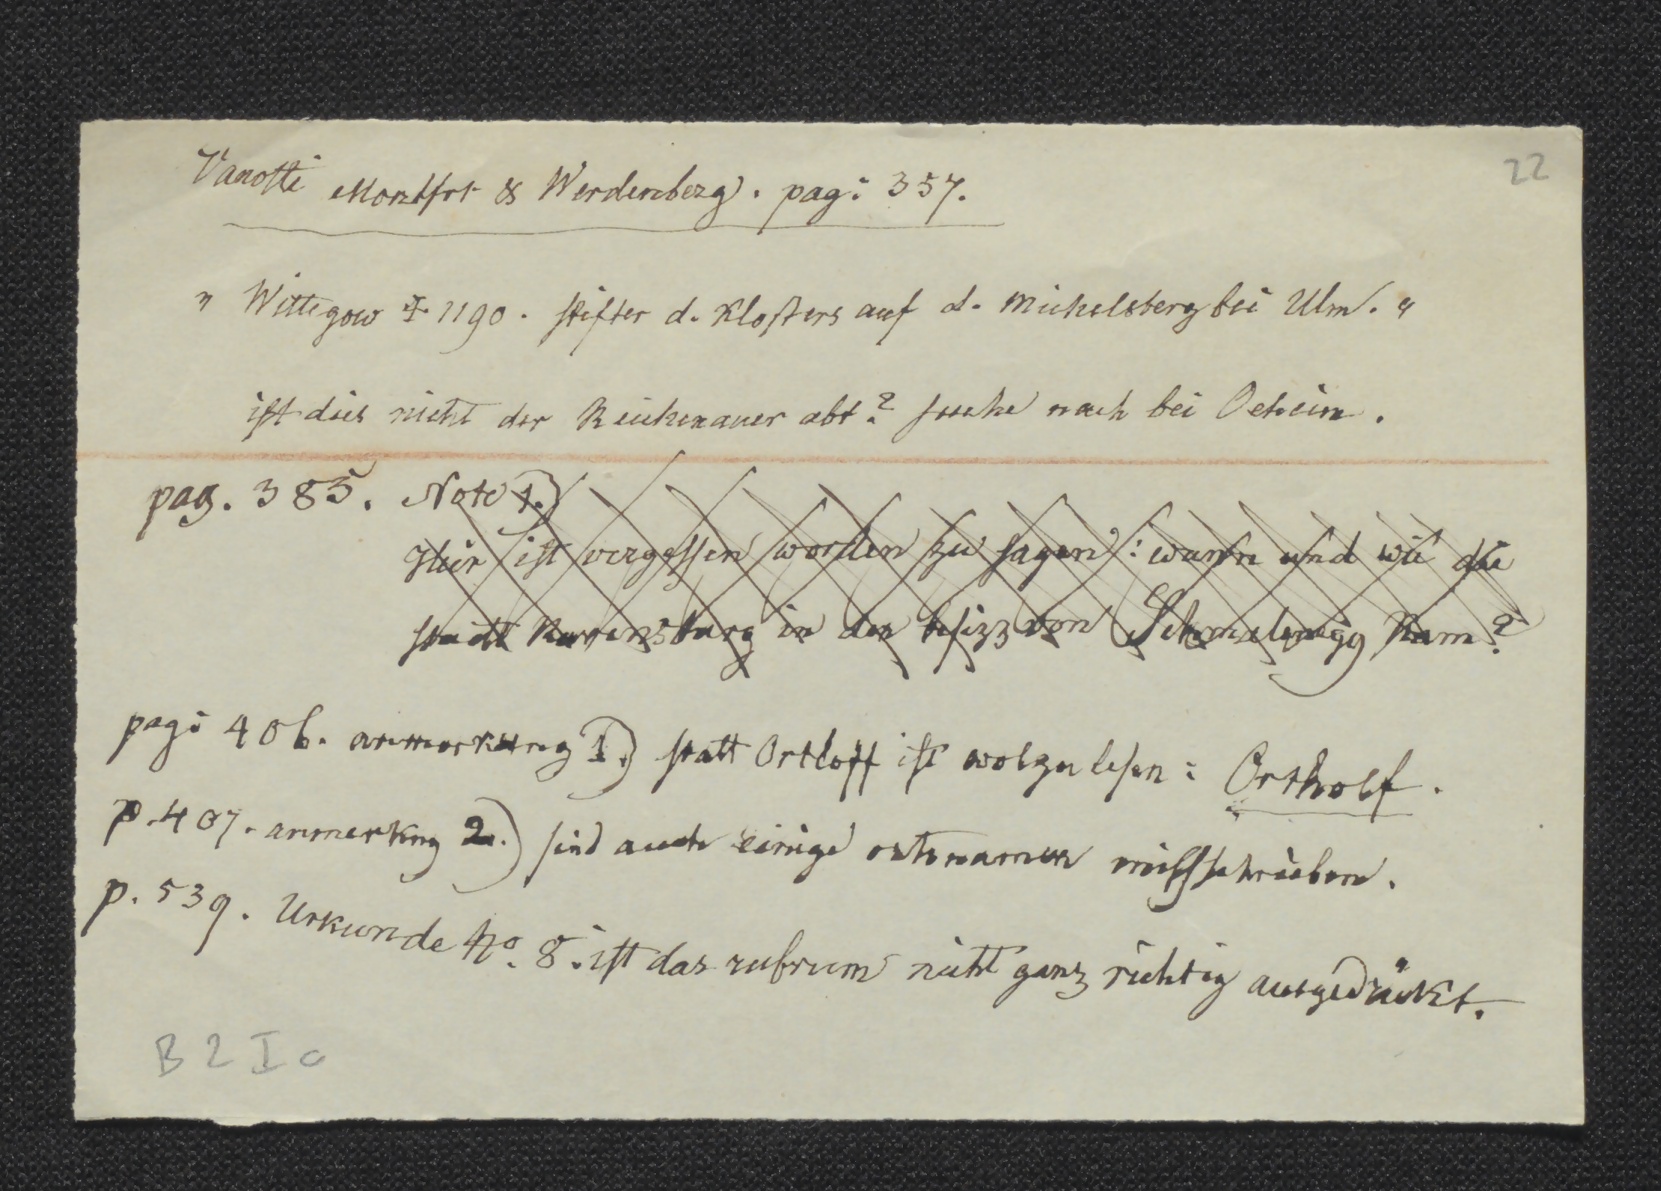 22
Vanotti Montfrt & Werdenberg. pag: 357.
" Wittegow ‡ 1190. stifter d. Klosters auf d. Michelsberg bei Ulm. "
ist dies nicht der Reichenauer abt? suche nach bei Oehein.
pag. 385. Note 1.)
Hier ist vergessen worden zu sagen: wann und wie die
stadt Ravensburg in den besizz von Schmalenegg kam?
pag: 406. anmerkung 1.) statt Ortloff ist wol zu lesen: Ortholf.
p. 407. anmerkng 2.) sind auch einige ortsnamen missschrieben.
p. 539. Urkunde No. 8. ist das rubrum nicht ganz richtig ausgedrückt.
B 2 I c